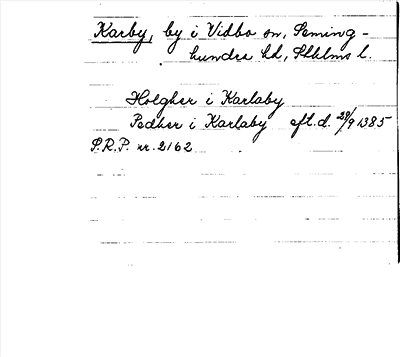 Karby, by i Vidbo sn, Seming-
hundra hd, Sthlms l.
Holgher i Karlaby
Pedher i Karlaby eft. d. 29/9 1385
P.R.P. nr. 2162